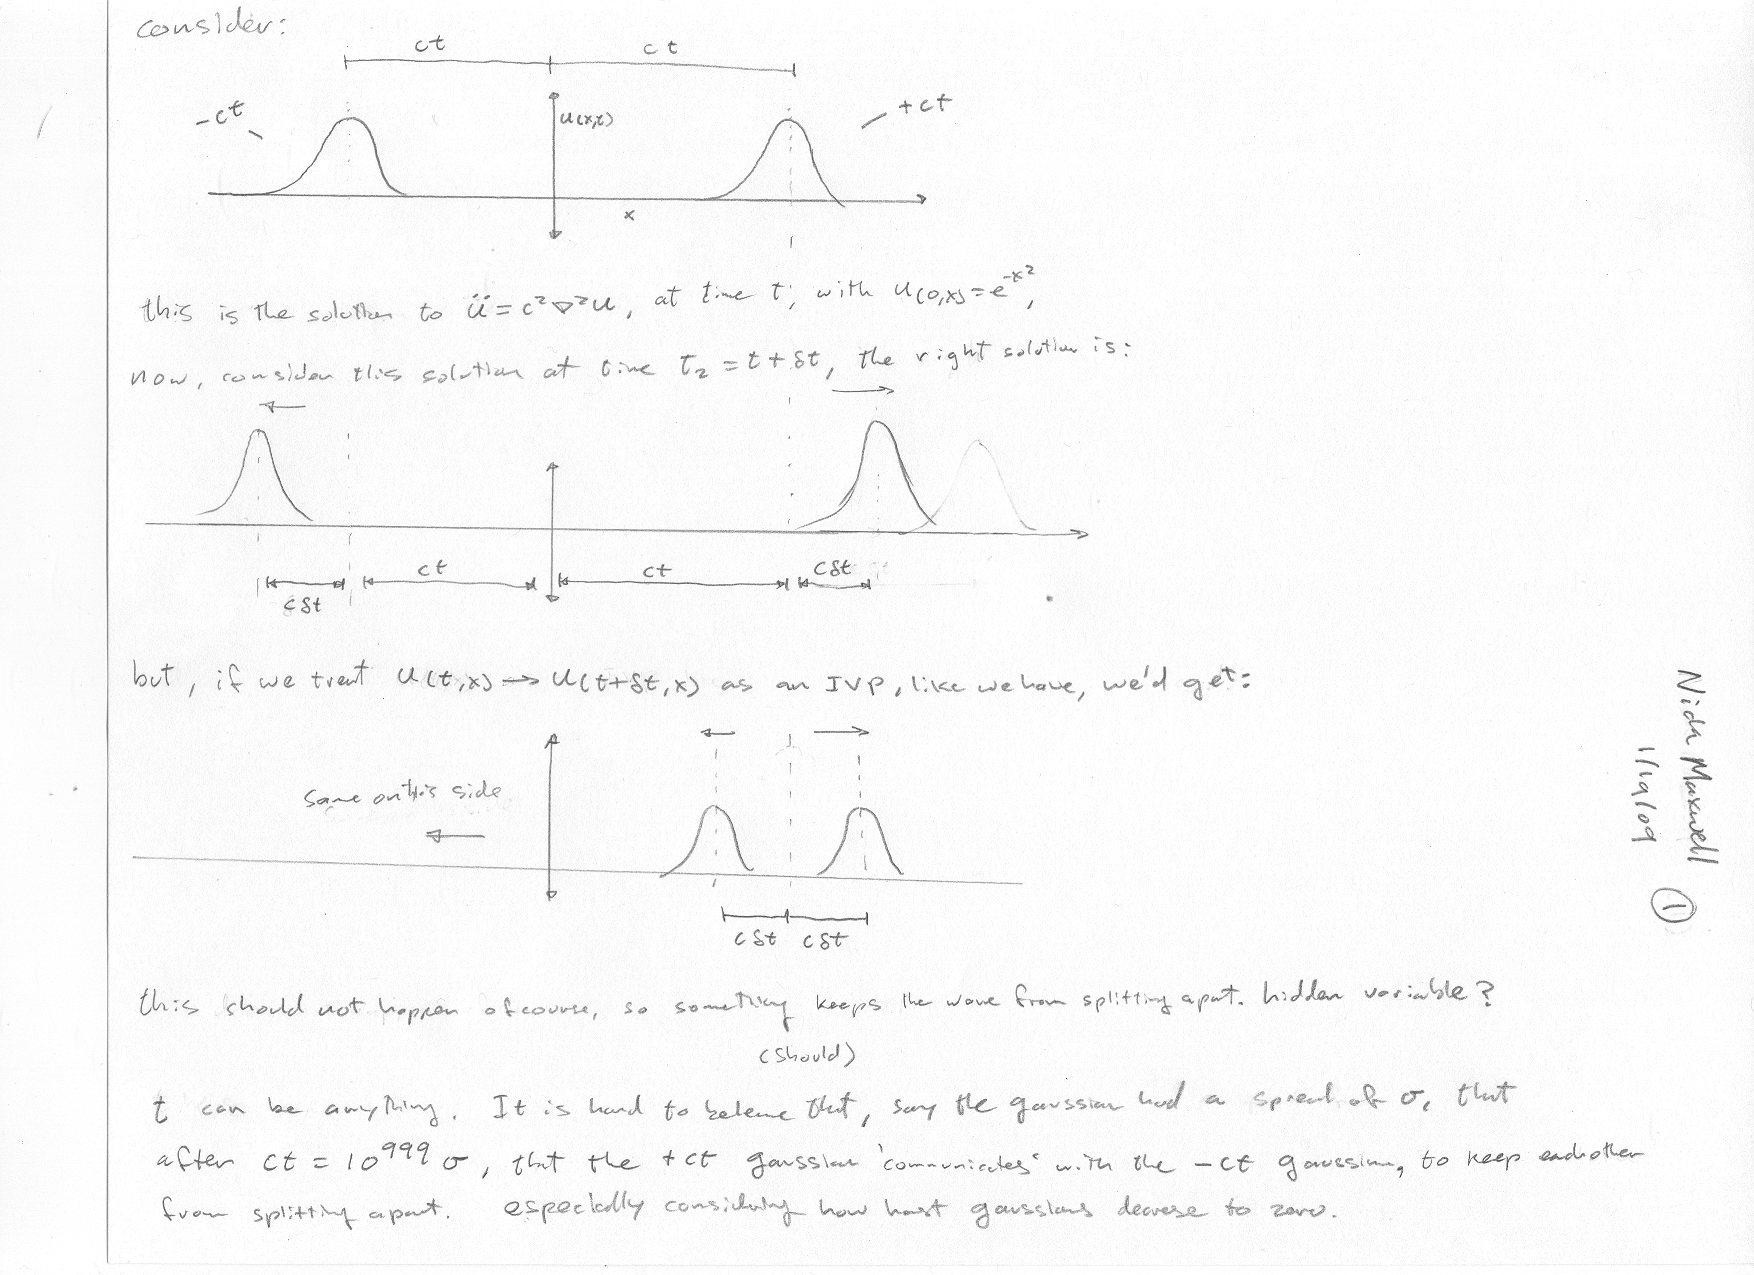 consider:
ct
ct
-ct
u(x,t)
+ct
x
this is the solution to ü = c²∇²u, at time t, with u(0,x) = e^-x²,
now, consider this solution at time t₂ = t + δt, the right solution is:
ct
ct
cδt
cδt
but, if we treat u(t,x) → u(t+δt,x) as an IVP, like we have, we'd get:
same on this side
cδt cδt
this should not happen ofcourse, so something keeps the wave from splitting apart. hidden variable?
(should)
t can be anything. It is hard to beleive that, say the gaussian had a spread of σ, that
after ct = 10^999 σ, that the +ct gaussian 'communicates' with the -ct gaussian, to keep eachother
from splitting apart. especially considering how gaussians decrese to zero.
Nida Maxwell
1/19/09
1